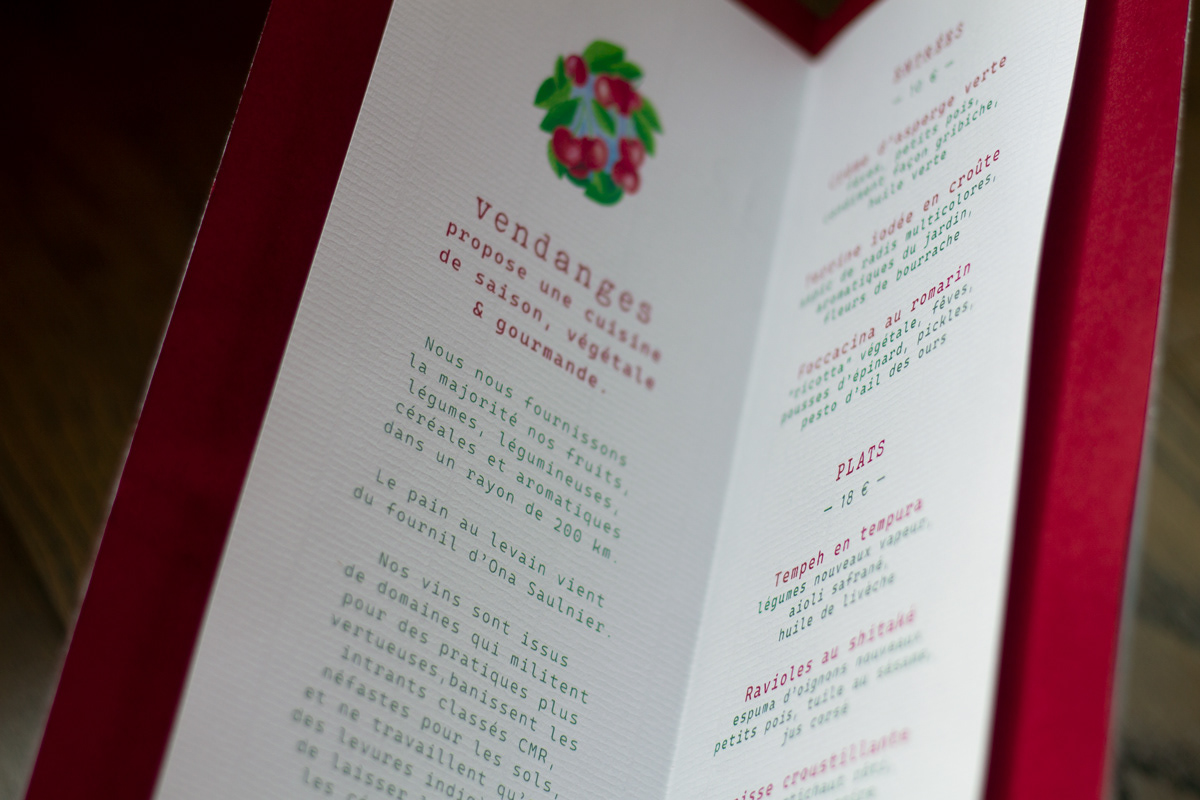 vendanges
propose une cuisine
de saison, végétale
& gourmande.
Nous nous fournissons
la majorité nos fruits,
légumes, légumineuses,
céréales et aromatiques
dans un rayon de 200 km.
Le pain au levain vient
du fournil d'Ona Saulnier.
Nos vins sont issus
de domaines qui militent
pour des pratiques plus
vertueuses,banissent les
intrants classés CMR,
néfastes pour les sols,
et ne travaillent qu'
des levures
de laisser
les
ENTRÉES
— 10 € —
Crème d'asperge verte
petits pois,
condiment façon gribiche,
huile verte
Terrine iodée en croûte
de radis multicolores,
aromatiques du jardin,
fleurs de bourrache
Foccacina au romarin
"ricotta" végétale, fèves,
pousses d'épinard, pickles,
pesto d'ail des ours
PLATS
— 18 € —
Tempeh en tempura
légumes nouveaux vapeur,
aïoli safrané,
huile de livèche
Ravioles au shitaké
espuma d'oignons nouveaux
petits pois, tuile au sésame,
jus corsé
croustillante